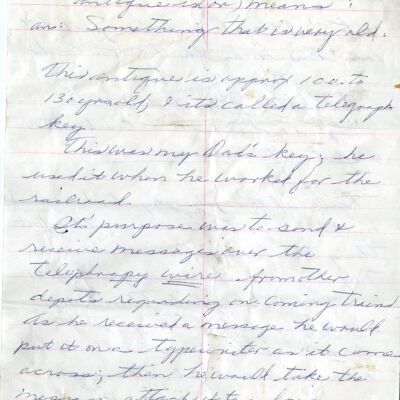 antique is or means :
ans: Something that is very old.
This antique is approx 100 to
130 yrs old, & its called a telegraph
key
This was my Dad's key; he
used it when he worked for the
railroad.
It's purpose was to send &
receive messages over the
telephrapy wire from other
depots regarding on coming trains
As he received a message he would
put it on a typewriter as it came
across; then he would take the